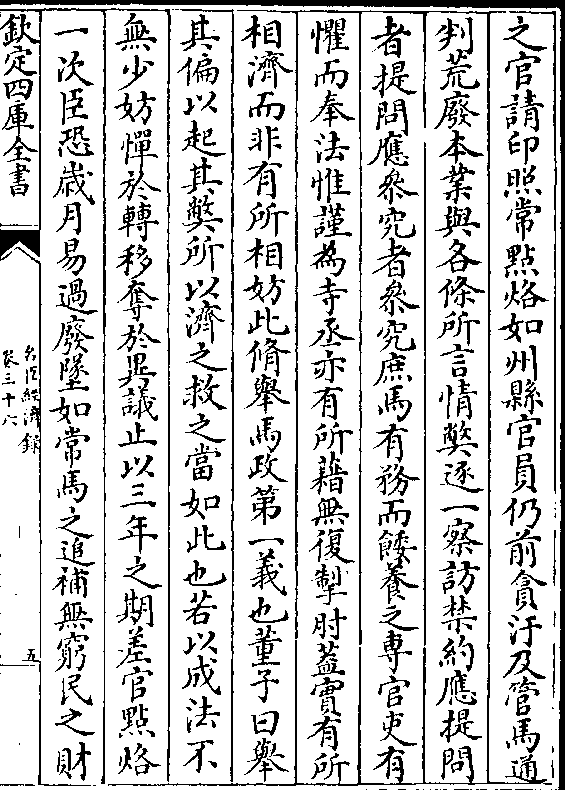 之官請印照常點烙如州縣官員仍前貪汙及管馬通
判荒廢本業與各條所言情弊逐一察訪禁約應提問
者提問應叅究者叅究庶馬有務而餧養之專官吏有
懼而奉法惟謹為寺丞亦有所藉無復掣肘葢實有所
相濟而非有所相妨此脩舉馬政第一義也董子曰舉
其偏以起其弊所以濟之救之當如此也若以成法不
無少妨憚於轉移奪於異議止以三年之期差官點烙
一次臣恐歲月易過廢墜如常馬之追補無窮民之財
欽定四庫全書
名臣經濟錄
卷三十六
五